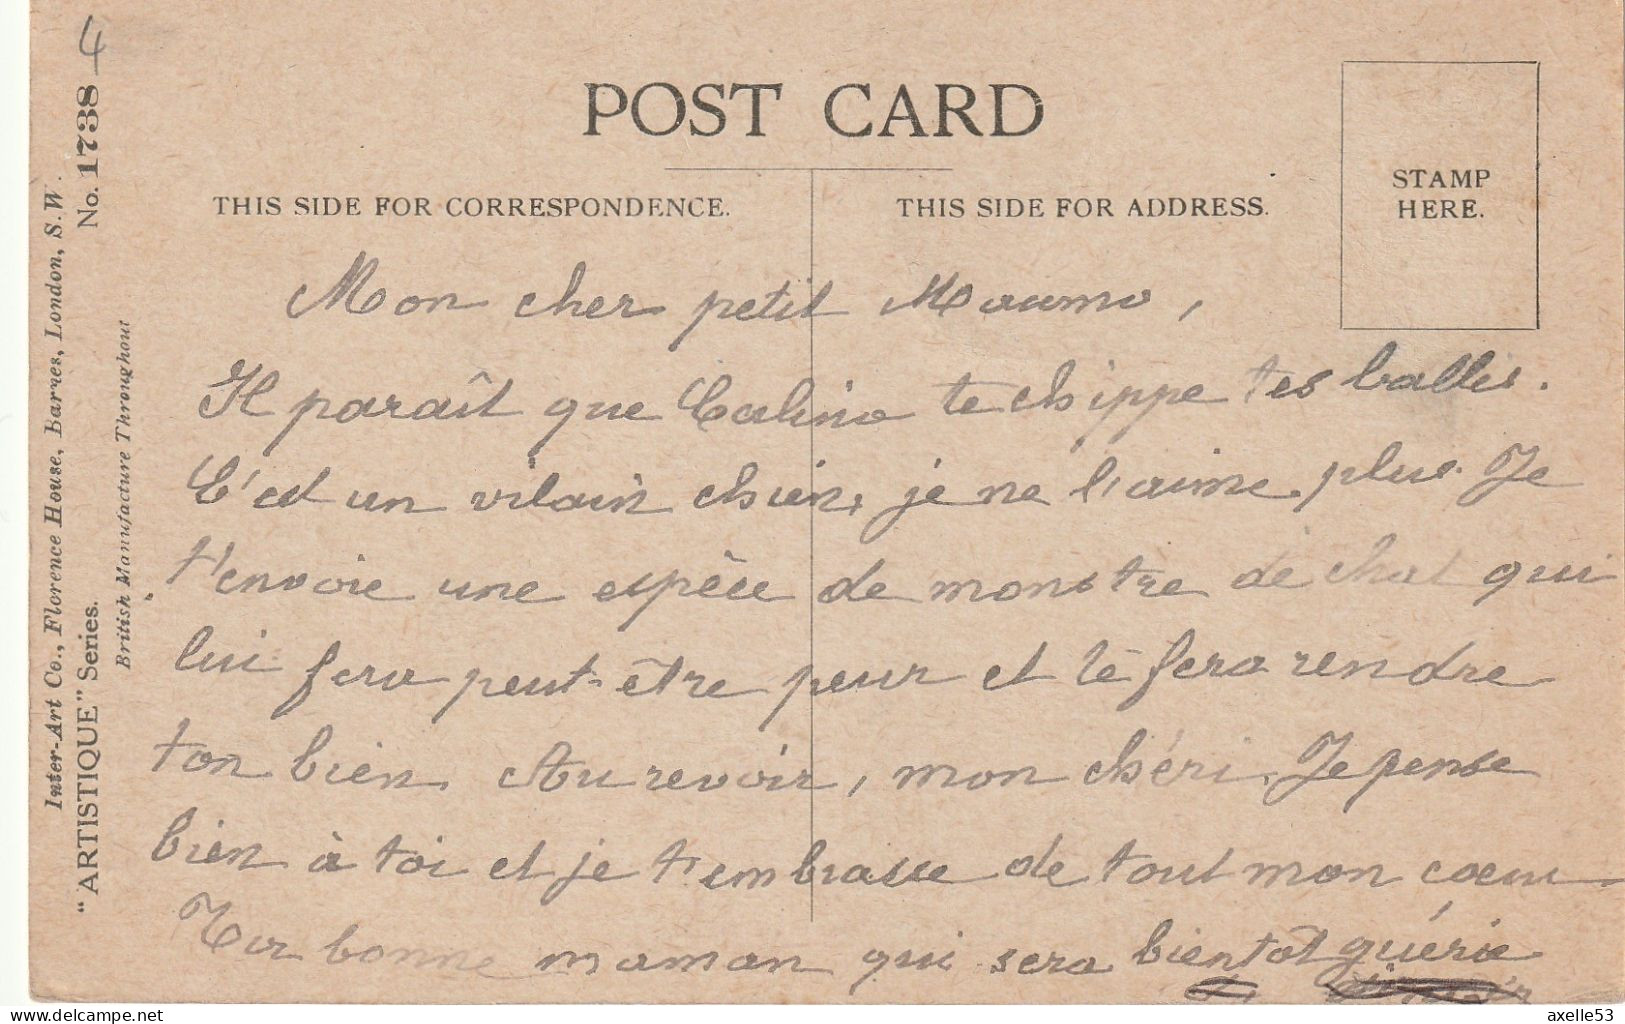 4
POST CARD
THIS SIDE FOR CORRESPONDENCE.
THIS SIDE FOR ADDRESS.
STAMP
HERE.
Inter-Art Co., Florence House, Barnes, London, S.W.
"ARTISTIQUE" Series.
No. 1738
British Manufacture Throughout
Mon cher petit
Il paraît que Calino te chippe tes balles.
C'est un vilain chien, je ne l'aime plus. Je
t'envoie une espèce de monstre de chat qui
lui fera peut-être peur et te fera rendre
ton bien. Au revoir, mon chéri. Je pense
bien à toi et je t'embrasse de tout mon coeur
Ta bonne maman qui sera bientôt guérie
delcampe.net
axelle53